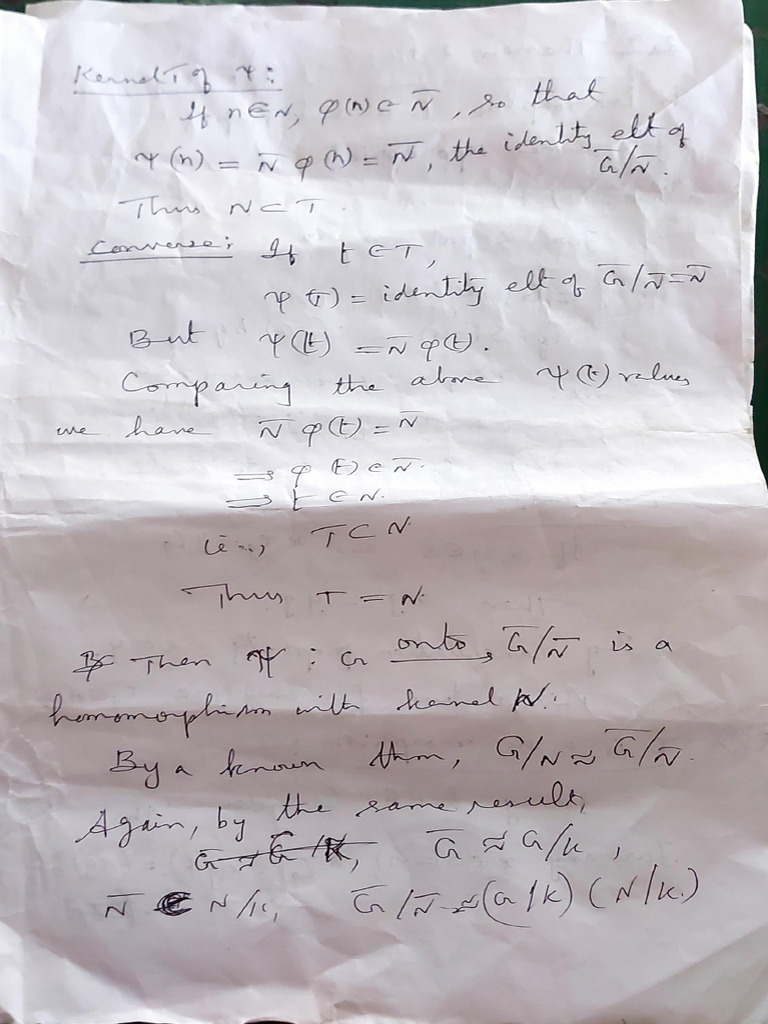 Kernel T of ψ:
If n∈N, φ(n) ∈ N̄, so that
ψ(n) = N̄ φ(n) = N̄, the identity elt of
Ḡ/N̄.
Thus N⊂T.
Converse: If t∈T,
ψ(t) = identity elt of Ḡ/N̄=N̄
But ψ(t) = N̄ φ(t).
Comparing the above ψ(t) values
we have N̄ φ(t) = N̄
⇒ φ(t) ∈ N̄.
⇒ t ∈ N.
(i.e., T⊂N
Thus T = N.
Then ψ : G onto→ Ḡ/N̄ is a
homomorphism with kernel N.
By a known thm, G/N ≈ Ḡ/N̄.
Again, by the same result,
Ḡ ≈ Ḡ/K, Ḡ ≈ G/K,
N̄ N/K, Ḡ/N̄ ≈ (G/K) (N/K.)